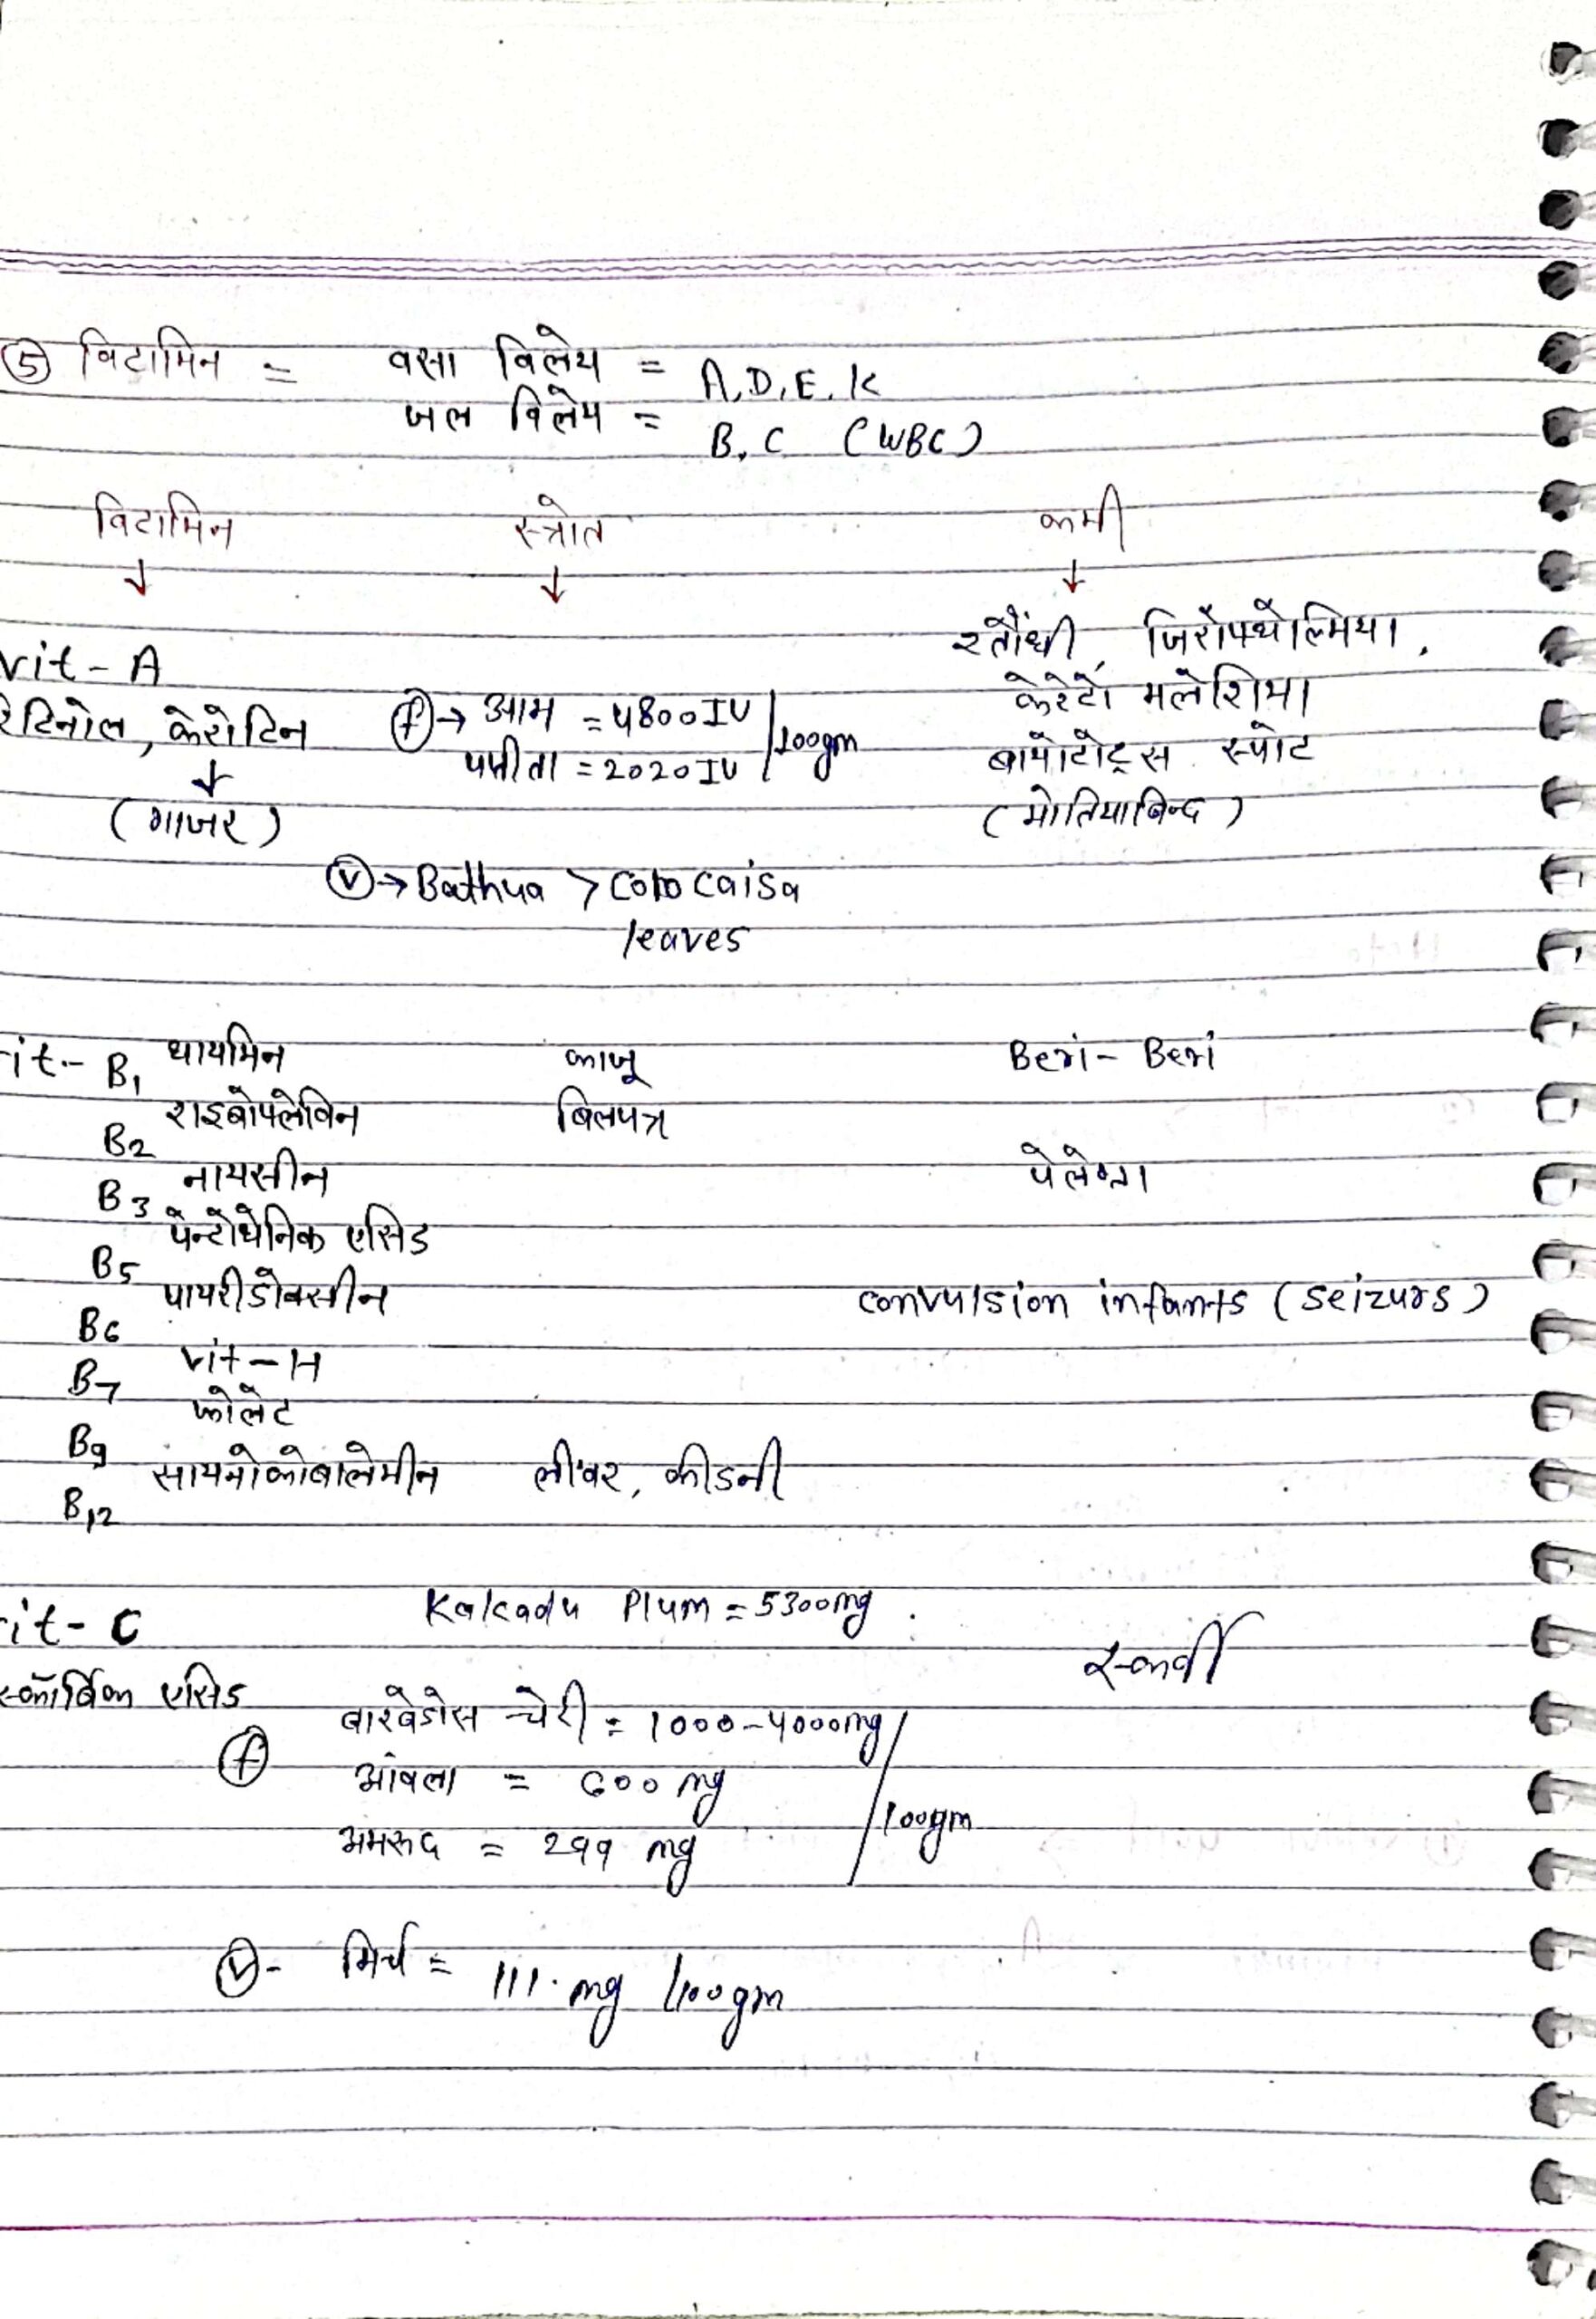 ⑤ विटामिन = वसा विलेय = A, D, E, K
जल विलेय = B, C (WBC)
विटामिन स्त्रोत कमी
↓ ↓ ↓
vit - A रतौंधी, जिरोफ्थेल्मिया,
रेटिनोल, केरोटिन ⓕ→ आम = 4800 IU /100gm केरेटो मलेशिया
↓ पपीता = 2020 IU बायोटोट्स स्पोट
(गाजर) (मोतियाबिन्द)
ⓥ→ Bathua > Colocaisa
leaves
it - B1 थायमिन काजू Beri - Beri
B2 राइबोफ्लेविन बिलपत्र
B3 नायसीन पेलेग्रा
B5 पेन्टोथेनिक एसिड
B6 पायरीडोक्सीन convulsion infants (seizurs)
B7 vit - H
B9 फोलेट
B12 सायनोकोबालेमीन लीवर, कीडनी
it - C Kakadu Plum = 5300mg.
स्कर्वी
स्कॉर्बिक एसिड बारबेडोस चेरी = 1000-4000mg
ⓕ आंवला = 600 mg /100gm
अमरूद = 299 mg
ⓥ- मिर्च = 111. mg /100gm